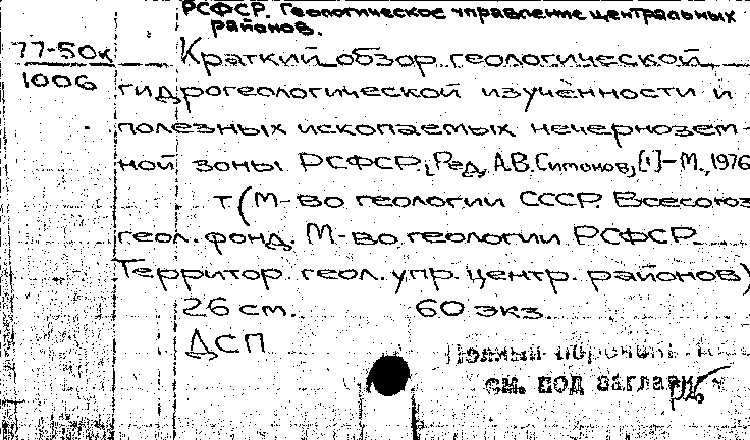 РСФСР. Геологическое управление центральных
районов.
77-50к
1006
Краткий обзор геологической,
гидрогеологической изученности и
полезных ископаемых нечернозем-
ной зоны РСФСР, Ред. А.В. Симонов, [1]-М., 1976
т (М-во геологии СССР. Всесоюз
геол. фонд. М-во геологии РСФСР.
Территор. геол. упр. центр. районов)
26 см. 60 экз.
ДСП
Полный
см. под заглави